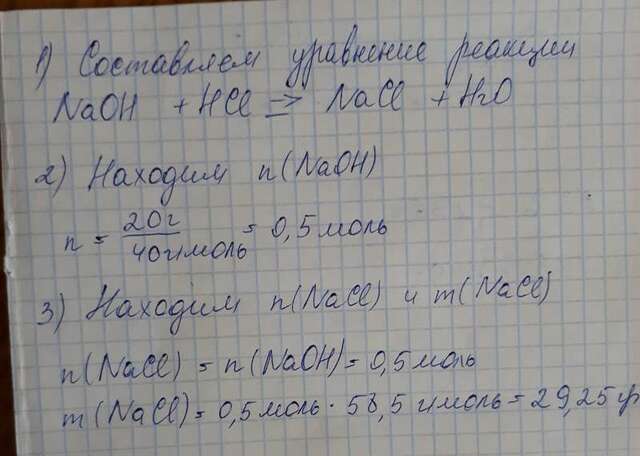 1) Составляем уравнение реакции
NaOH + HCl => NaCl + H2O
2) Находим n(NaOH)
n = 20г/40г/моль = 0,5 моль
3) Находим n(NaCl) и m(NaCl)
n(NaCl) = n(NaOH) = 0,5 моль
m(NaCl) = 0,5 моль · 58,5 г/моль = 29,25 гр